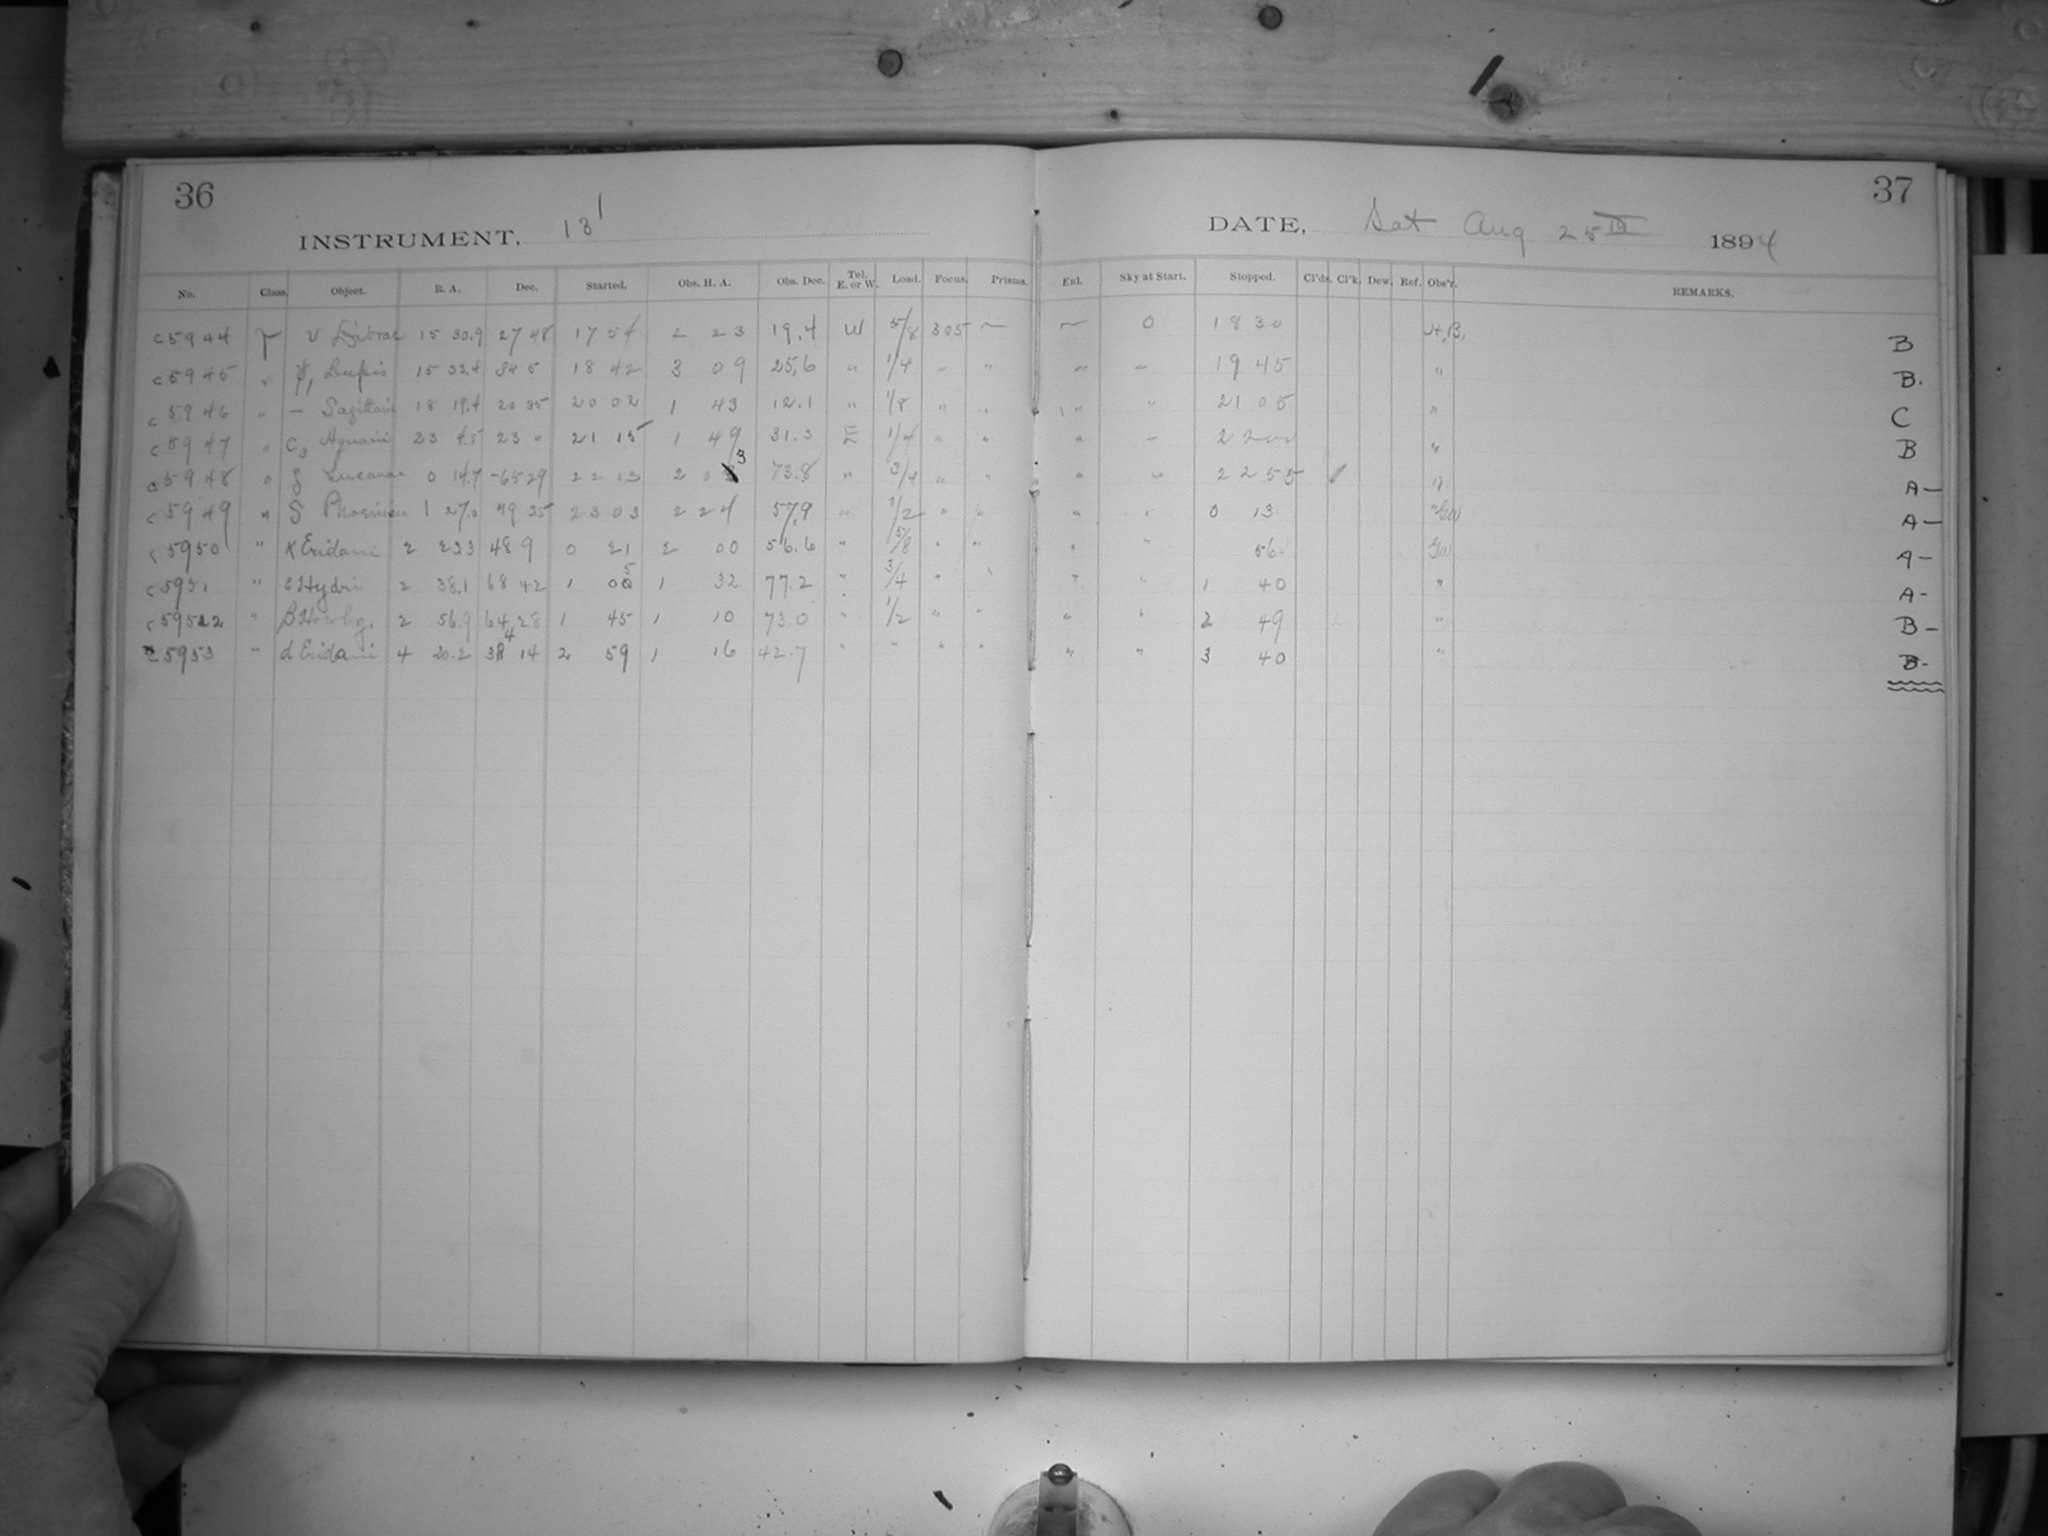 36
37
INSTRUMENT, 13'
DATE, Sat Aug 25th 1894
No. Class. Object. R. A. Dec. Started. Obs. H. A. Obs. Dec. Tel. E. or W. Load. Focus. Prisms. Enl. Sky at Start. Stopped. Cl'ds. Cl'k. Dew. Ref. Obs'r. REMARKS.
c5944 υ Librae 15 30.9 27 48 17 54 2 23 19.4 W 5/8 305 — — 0 18 30 H.B. B
c5945 " ψ1 Lupis 15 33.4 34 5 18 42 3 09 25.6 " 1/4 " " " — 19 45 " B.
c5946 " — Sagittarii 18 19.4 20 35 20 02 1 43 12.1 " 1/8 " " " " 21 05 " C
c5947 " C3 Aquarii 23 4.5 23 0 21 15 1 49 31.3 E 1/4 " " " — 22 00 " B
c5948 " ζ Tucanae 0 14.7 -65 29 22 13 2 03 73.8 " 3/4 " " " " 22 55 " A-
c5949 " δ Phoenicii 1 27.0 49 35 23 03 2 24 57.9 " 1/2 " " " " 0 13 A-
c5950 " κ Eridani 2 23.3 48 9 0 21 2 00 56.6 " 5/8 " " " " 56 A-
c5951 " ε Hydri 2 38.1 68 42 1 05 1 32 77.2 " 3/4 " " " " 1 40 " A-
c5952 " β Horolog. 2 56.9 64 28 1 45 1 10 73.0 " 1/2 " " " " 2 49 " B-
c5953 " d Eridani 4 20.2 34 14 2 59 1 16 42.7 " " " " " " 3 40 " B-